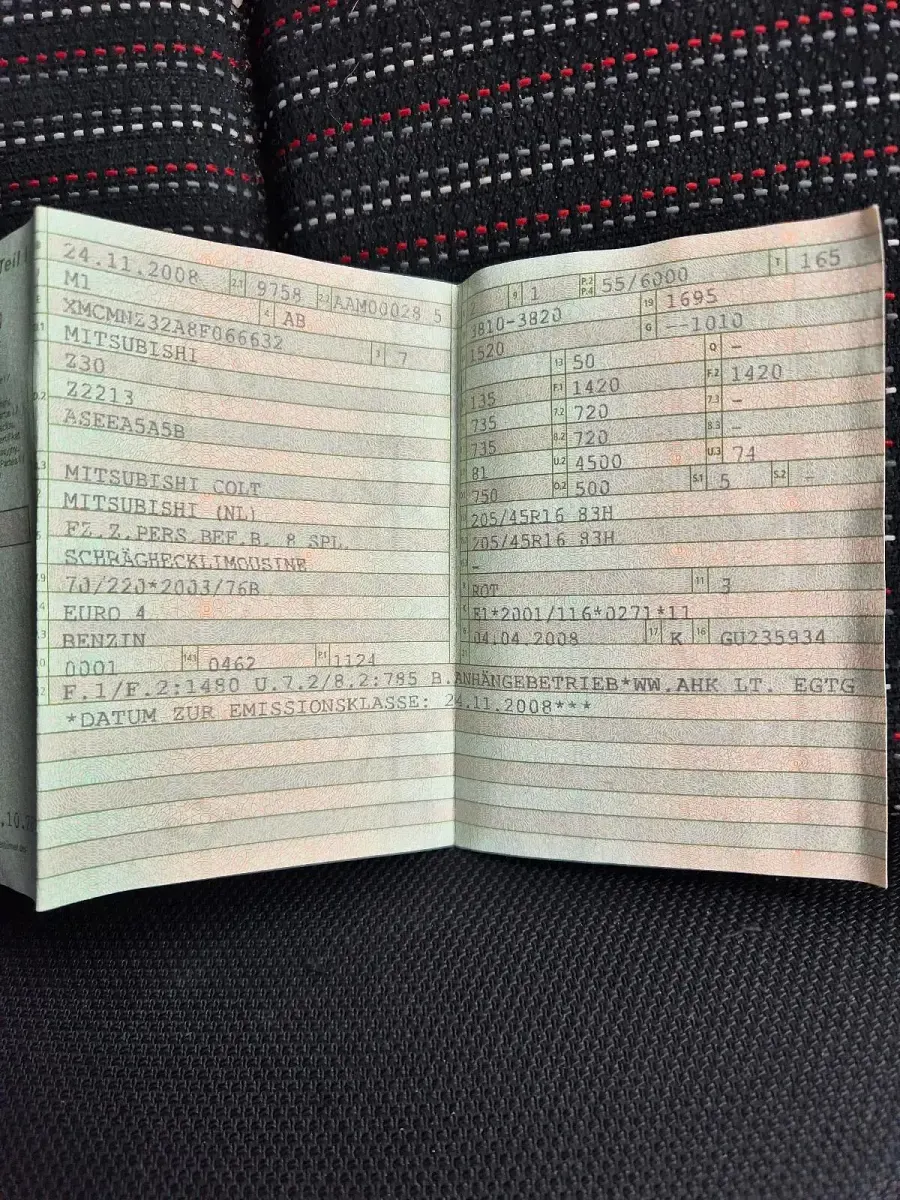 Teil I
24.11.2008 2.1 9758 2.2 AAM00028 5
M1 4 AB
XMCMNZ32A8F066632 3 7
MITSUBISHI
Z30
Z2213
ASEEA5A5B
MITSUBISHI COLT
MITSUBISHI (NL)
FZ.Z.PERS.BEF.B. 8 SPL.
SCHRÄGHECKLIMOUSINE
70/220*2003/76B
EURO 4
BENZIN
0001 14.1 0462 P.1 1124
2 9 1 P.2 P.4 55/6000 T 165
3810-3820 19 1695
1520 G --1010
13 50 Q -
135 F.1 1420 F.2 1420
735 7.2 720 7.3 -
735 8.2 720 8.3 -
81 U.2 4500 U.3 74
750 O.2 500 S.1 5 S.2 -
205/45R16 83H
205/45R16 83H
-
ROT 11 3
E1*2001/116*0271*11
04.04.2008 17 K 16 GU235934
22 F.1/F.2:1480 U.7.2/8.2:785 B.ANHÄNGEBETRIEB*WW.AHK LT. EGTG
*DATUM ZUR EMISSIONSKLASSE: 24.11.2008***